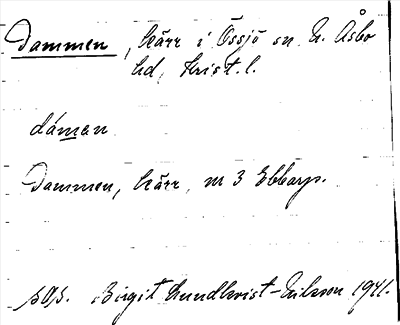 Dammen, kärr i Össjö sn N. Åsbo
hd, Krist. l.
dámen
Dammen, kärr, m 3 Ebbarp.
Birgit Lundkvist-Nilsson 1941.